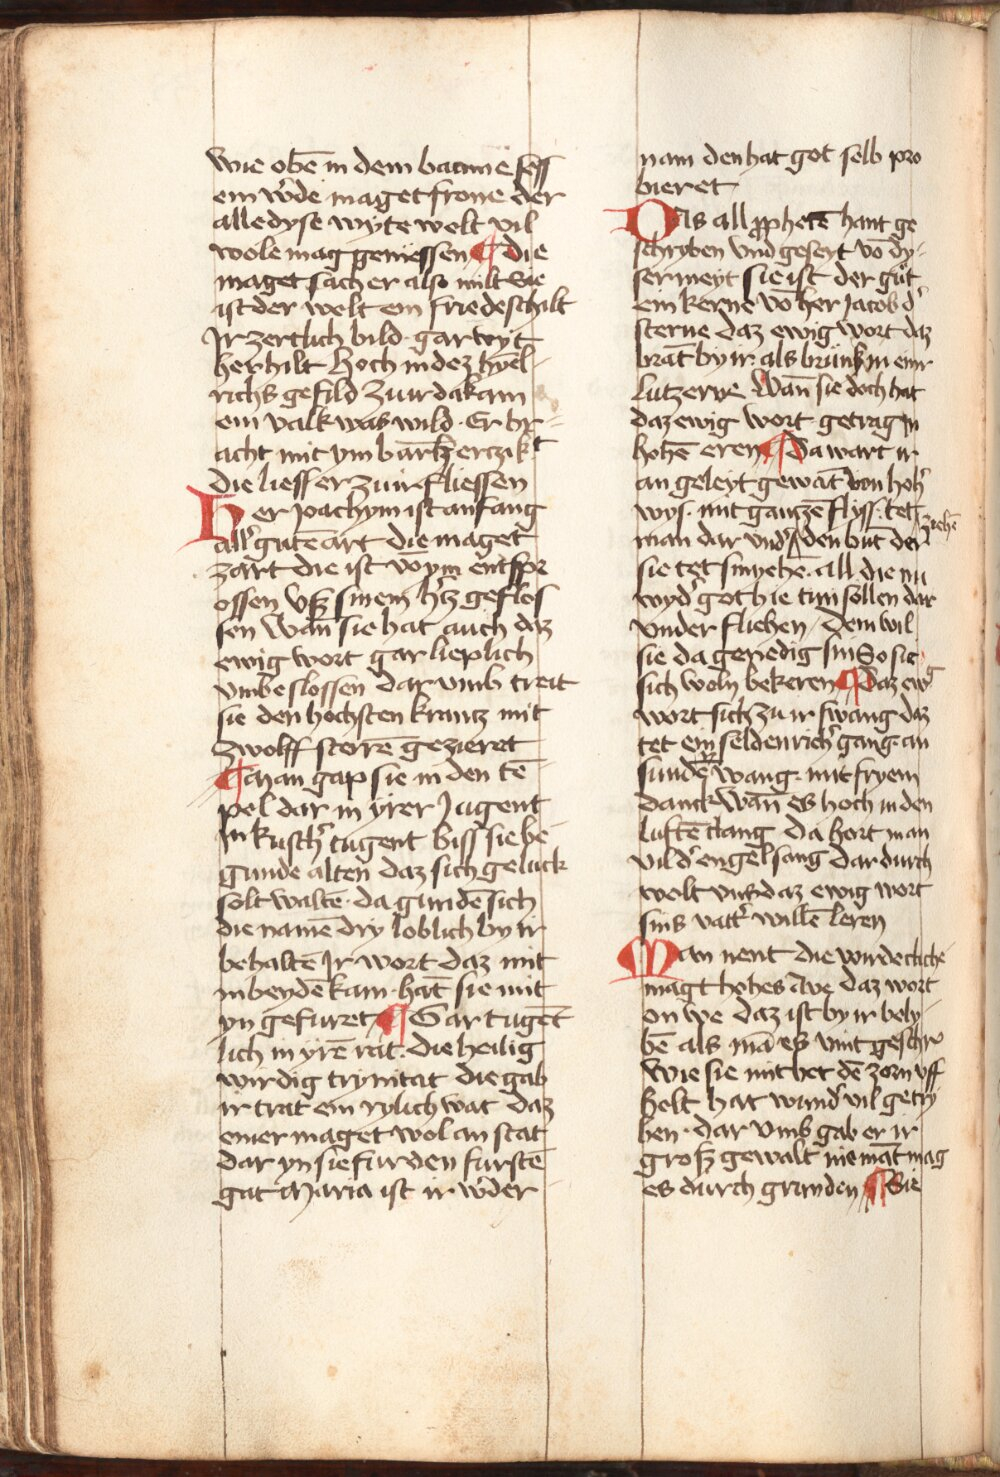 wie obē in dem baume sess
ein w'de maget frone der
alle dyse wyte welt vil
wole mag genießsen ¶ die
maget sach er also milt Sie
ist der welt ein friedeschilt
Ir zertlich bild · gar wyt
her hilt hoch in dez hyēl-
richs gefild Zu ir da kam
ein valk was wild · Er br-
acht mit ym
die liess er zu ir fliessen
Her Joachym ist anfang
all' gutē art die maget
zart die ist vō ym entspr
ossen vß sinem h'tz geflos
sen Wañ sie hat auch daz
ewig wort gar lieplich
vmbeslossen dar vmb treit
sie den hochsten krantz mit
zwolff sterrē gezieret
¶ Man gap sie in den tē
pel dar in yrer Jugent
In kusch' tugent biss sie be
gunde alten daz sich geluck
solt waltē · da gundē sich
die namē dry loblich by ir
behaltē Ir wort daz mit
in beydē kam · hāt sie mit
yn gefuret ¶ Gar tugēt
lich in yrē rat · die heilig
wirdig trynitat die gab
ir trat ein rylich wat daz
einer maget wol an stat
dar yn sie fur den furstē
gat Maria ist ir w'der
nam den hat got selb pro
bieret
Das all pphetē hant ge
schryben vnd geseyt vō dy-
ser meyt sie ist der gut
ein kerne vō her Jacob d'
sterne daz ewig wort daz
brāt by ir als in einr
lutzerne Wañ sie doch hat
daz ewig wort getragen
hohē eren ¶ Da wart ir
an geleyt gewāt von hoh'
wys · mit gantzē flyss · tet
man dar vnd' ziehē den būt der
sie tet sin yehē · all die nu
wyd' got hie tun sollen dar
vnder fliehen / dem wil
sie da genedig sin So sie
sich woln bekeren ¶ Daz ewig
wort sich zu ir swang daz
tet ein seldenrich' gang · an
sundē wang · mit fryem
danck Wañ es hoch in den
luftē clang da hort man
vil d' engel sang dar durch
welt vns daz ewig wort
sins vatt' willē leren
Man nent die wirdecliche
magt hohes Ave daz wort
on we daz ist by ir bely-
bē als mā es vint geschr'
Wie sie mit bet dē zorn vff
helt hat wund' vil getry
ben · dar vmb gab er ir
groß gewalt niemāt mag
es durch grunden ¶ Sie